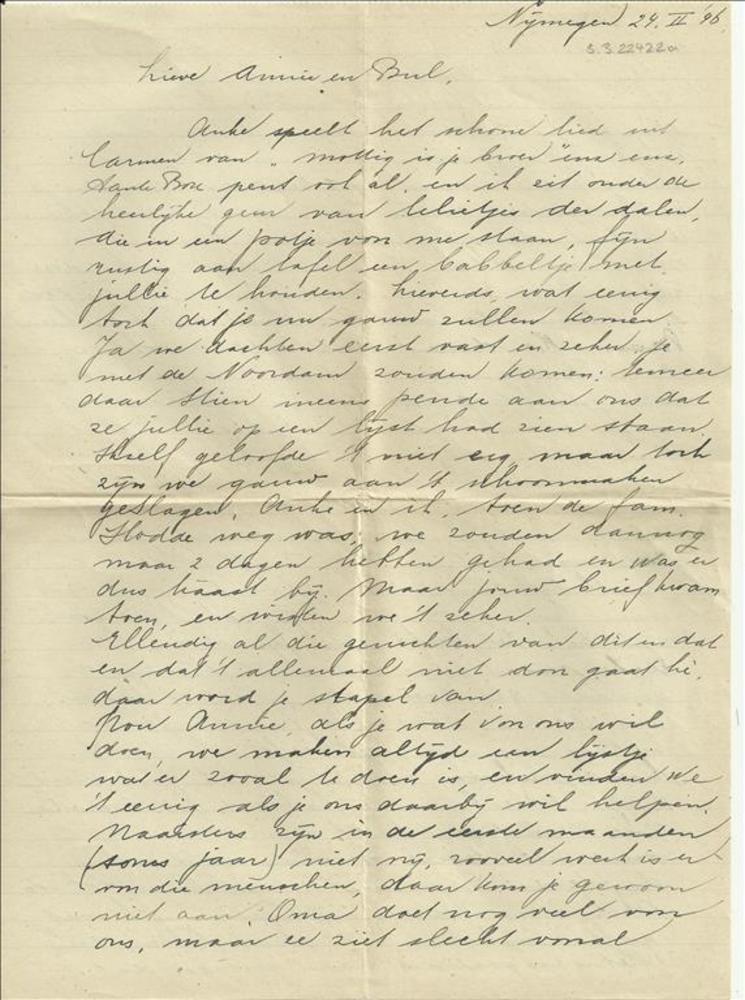 Nijmegen 24. II '46
S.3.22422a
Lieve Annie en Bul,
Anke speelt het schone lied uit
Carmen van "mottig is je broer" enz enz,
tante Box pent ook al, en ik zit onder de
heerlijke geur van lelietjes der dalen,
die in een potje voor me staan, fijn
rustig aan tafel een babbeltje met
jullie te houden. Lieverds, wat eenig
toch dat je nu gauw zullen komen
Ja we dachten eerst vast en zeker je
met de Noordam zouden komen; temeer
daar Stien ineens pende aan ons dat
ze jullie op een lijst had zien staan.
Ikzelf geloofde 't niet erg maar toch
zijn we gauw aan 't schoonmaken
geslagen, Anke en ik, toen de fam.
weg was; we zouden dan nog
maar 2 dagen hebben gehad en was er
dus haast bij. Maar jouw brief kwam
toen, en wisten we 't zeker.
Ellendig al die geruchten van dit en dat
en dat 't allemaal niet door gaat hè,
daar word je stapel van
Nou Annie, als je wat voor ons wil
doen, we maken altijd een lijstje
wat er zooal te doen is, en vinden we
't eenig als je ons daarbij wil helpen.
Naaisters zijn in de eerste maanden
(soms jaar) niet vrij, zooveel werk is er
van die menschen, daar kom je gewoon
niet aan. Oma doet nog veel voor
ons, maar ze ziet slecht vooral